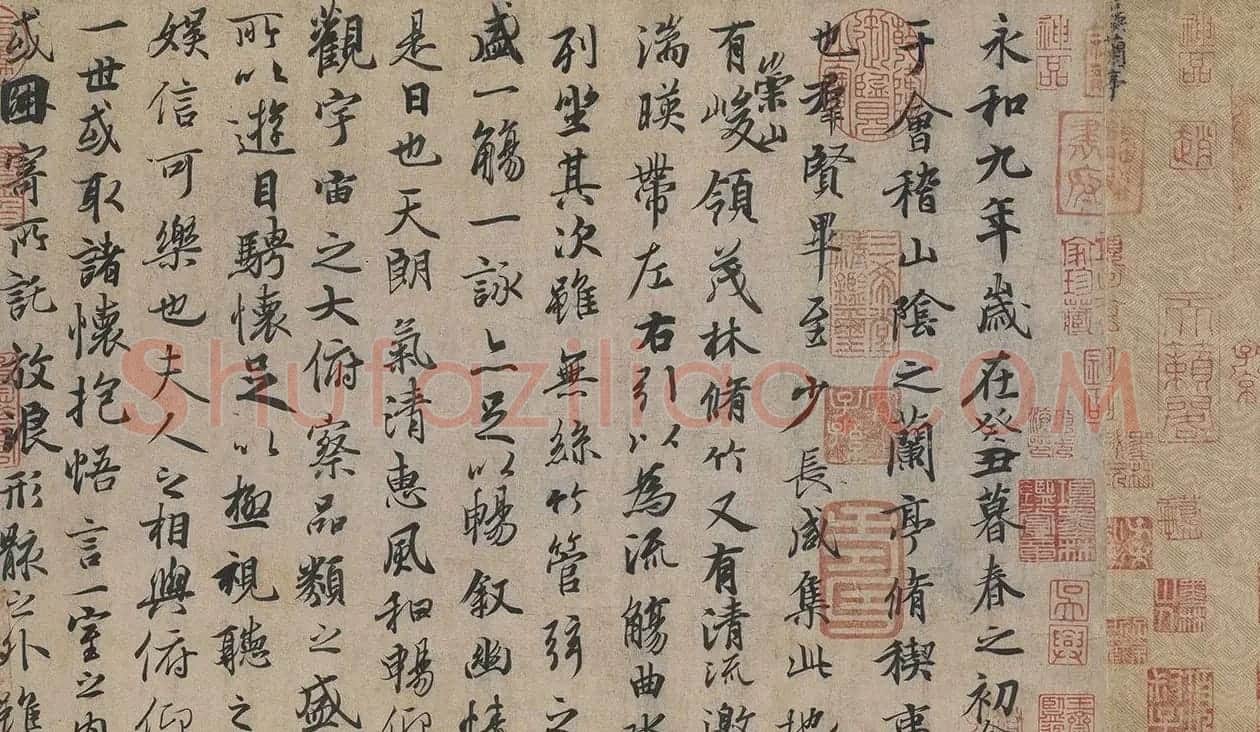 永和九年歲在癸丑暮春之初
于會稽山陰之蘭亭脩稧事
也羣賢畢至少長咸集此地
有崇山峻領茂林脩竹又有清流激
湍暎帶左右引以為流觴曲水
列坐其次雖無絲竹管弦之
盛一觴一詠亦足以暢叙幽情
是日也天朗氣清惠風和暢仰
觀宇宙之大俯察品類之盛
所以遊目騁懷足以極視聽之
娛信可樂也夫人之相與俯仰
一世或取諸懷抱悟言一室之內
或因寄所託放浪形骸之外雖
神品
神品
趙
家珍藏
吳興
Shufaziliao.COM